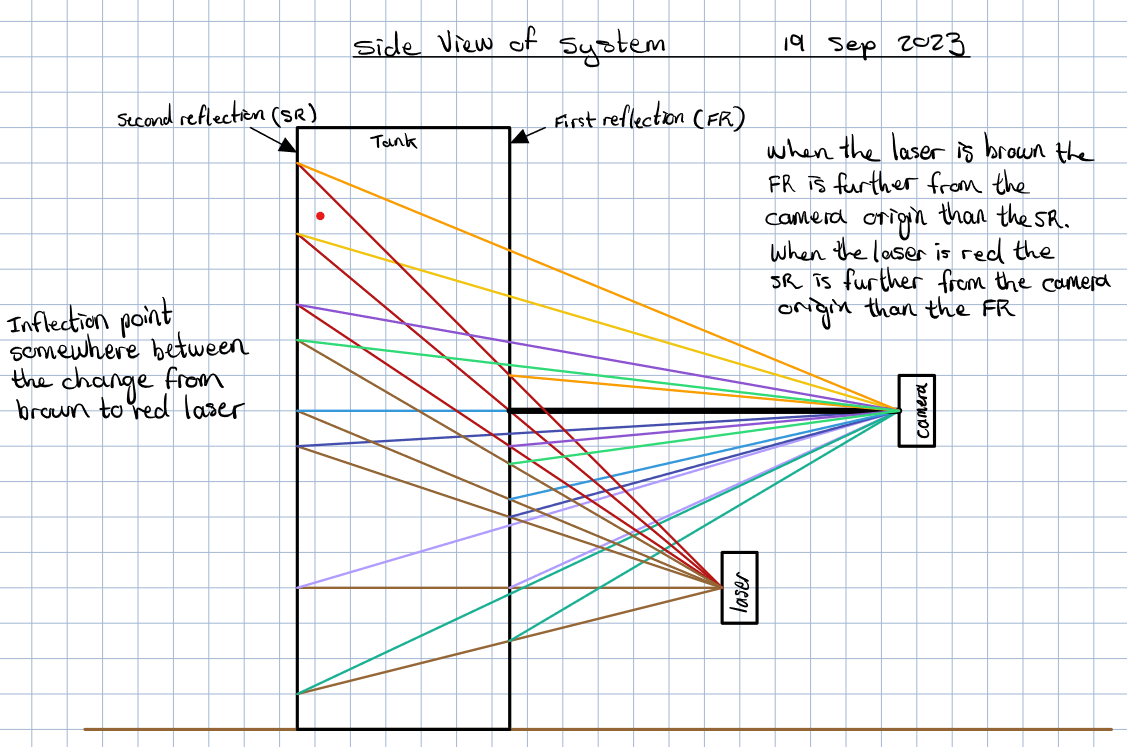 Side View of System 19 Sep 2023
Second reflection (SR)
First reflection (FR)
Tank
when the laser is brown the
FR is further from the
camera origin than the SR.
when the laser is red the
SR is further from the camera
origin than the FR
Inflection point
somewhere between
the change from
brown to red laser
camera
laser